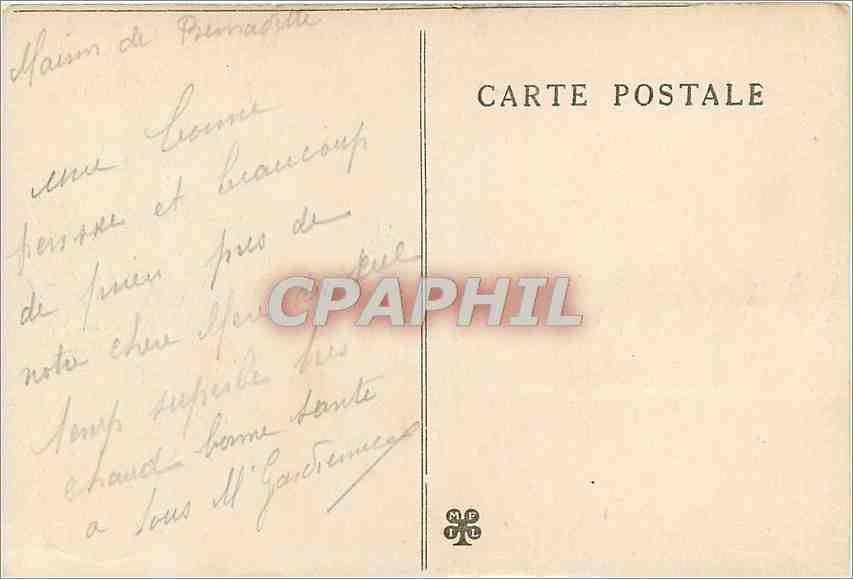 Maison de Bernadette
une bonne
pensse et beaucoup
de prier pres de
notre chere Mere du
temp superbe tres
chaud bonne sante
a tous M
CARTE POSTALE
CPAPHIL
M F
I L